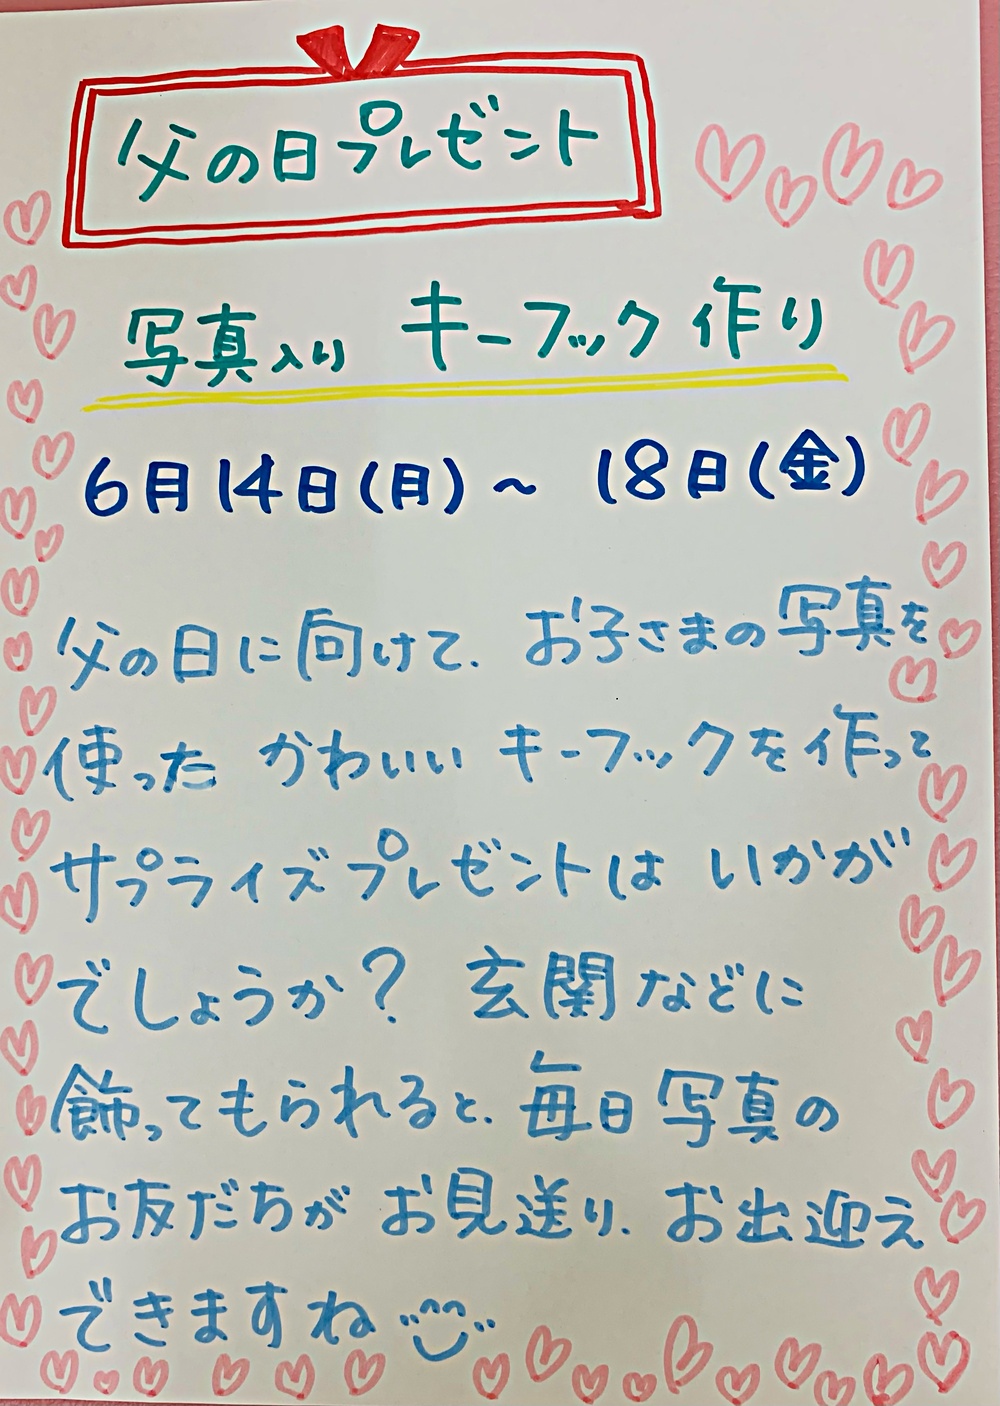 父の日プレゼント
写真入り キーフック作り
6月14日(月)～ 18日(金)
父の日に向けて、お子さまの写真を
使った かわいい キーフックを作って
サプライズプレゼントは いかが
でしょうか? 玄関などに
飾ってもられると、毎日写真の
お友だちが お見送り、お出迎え
できますね